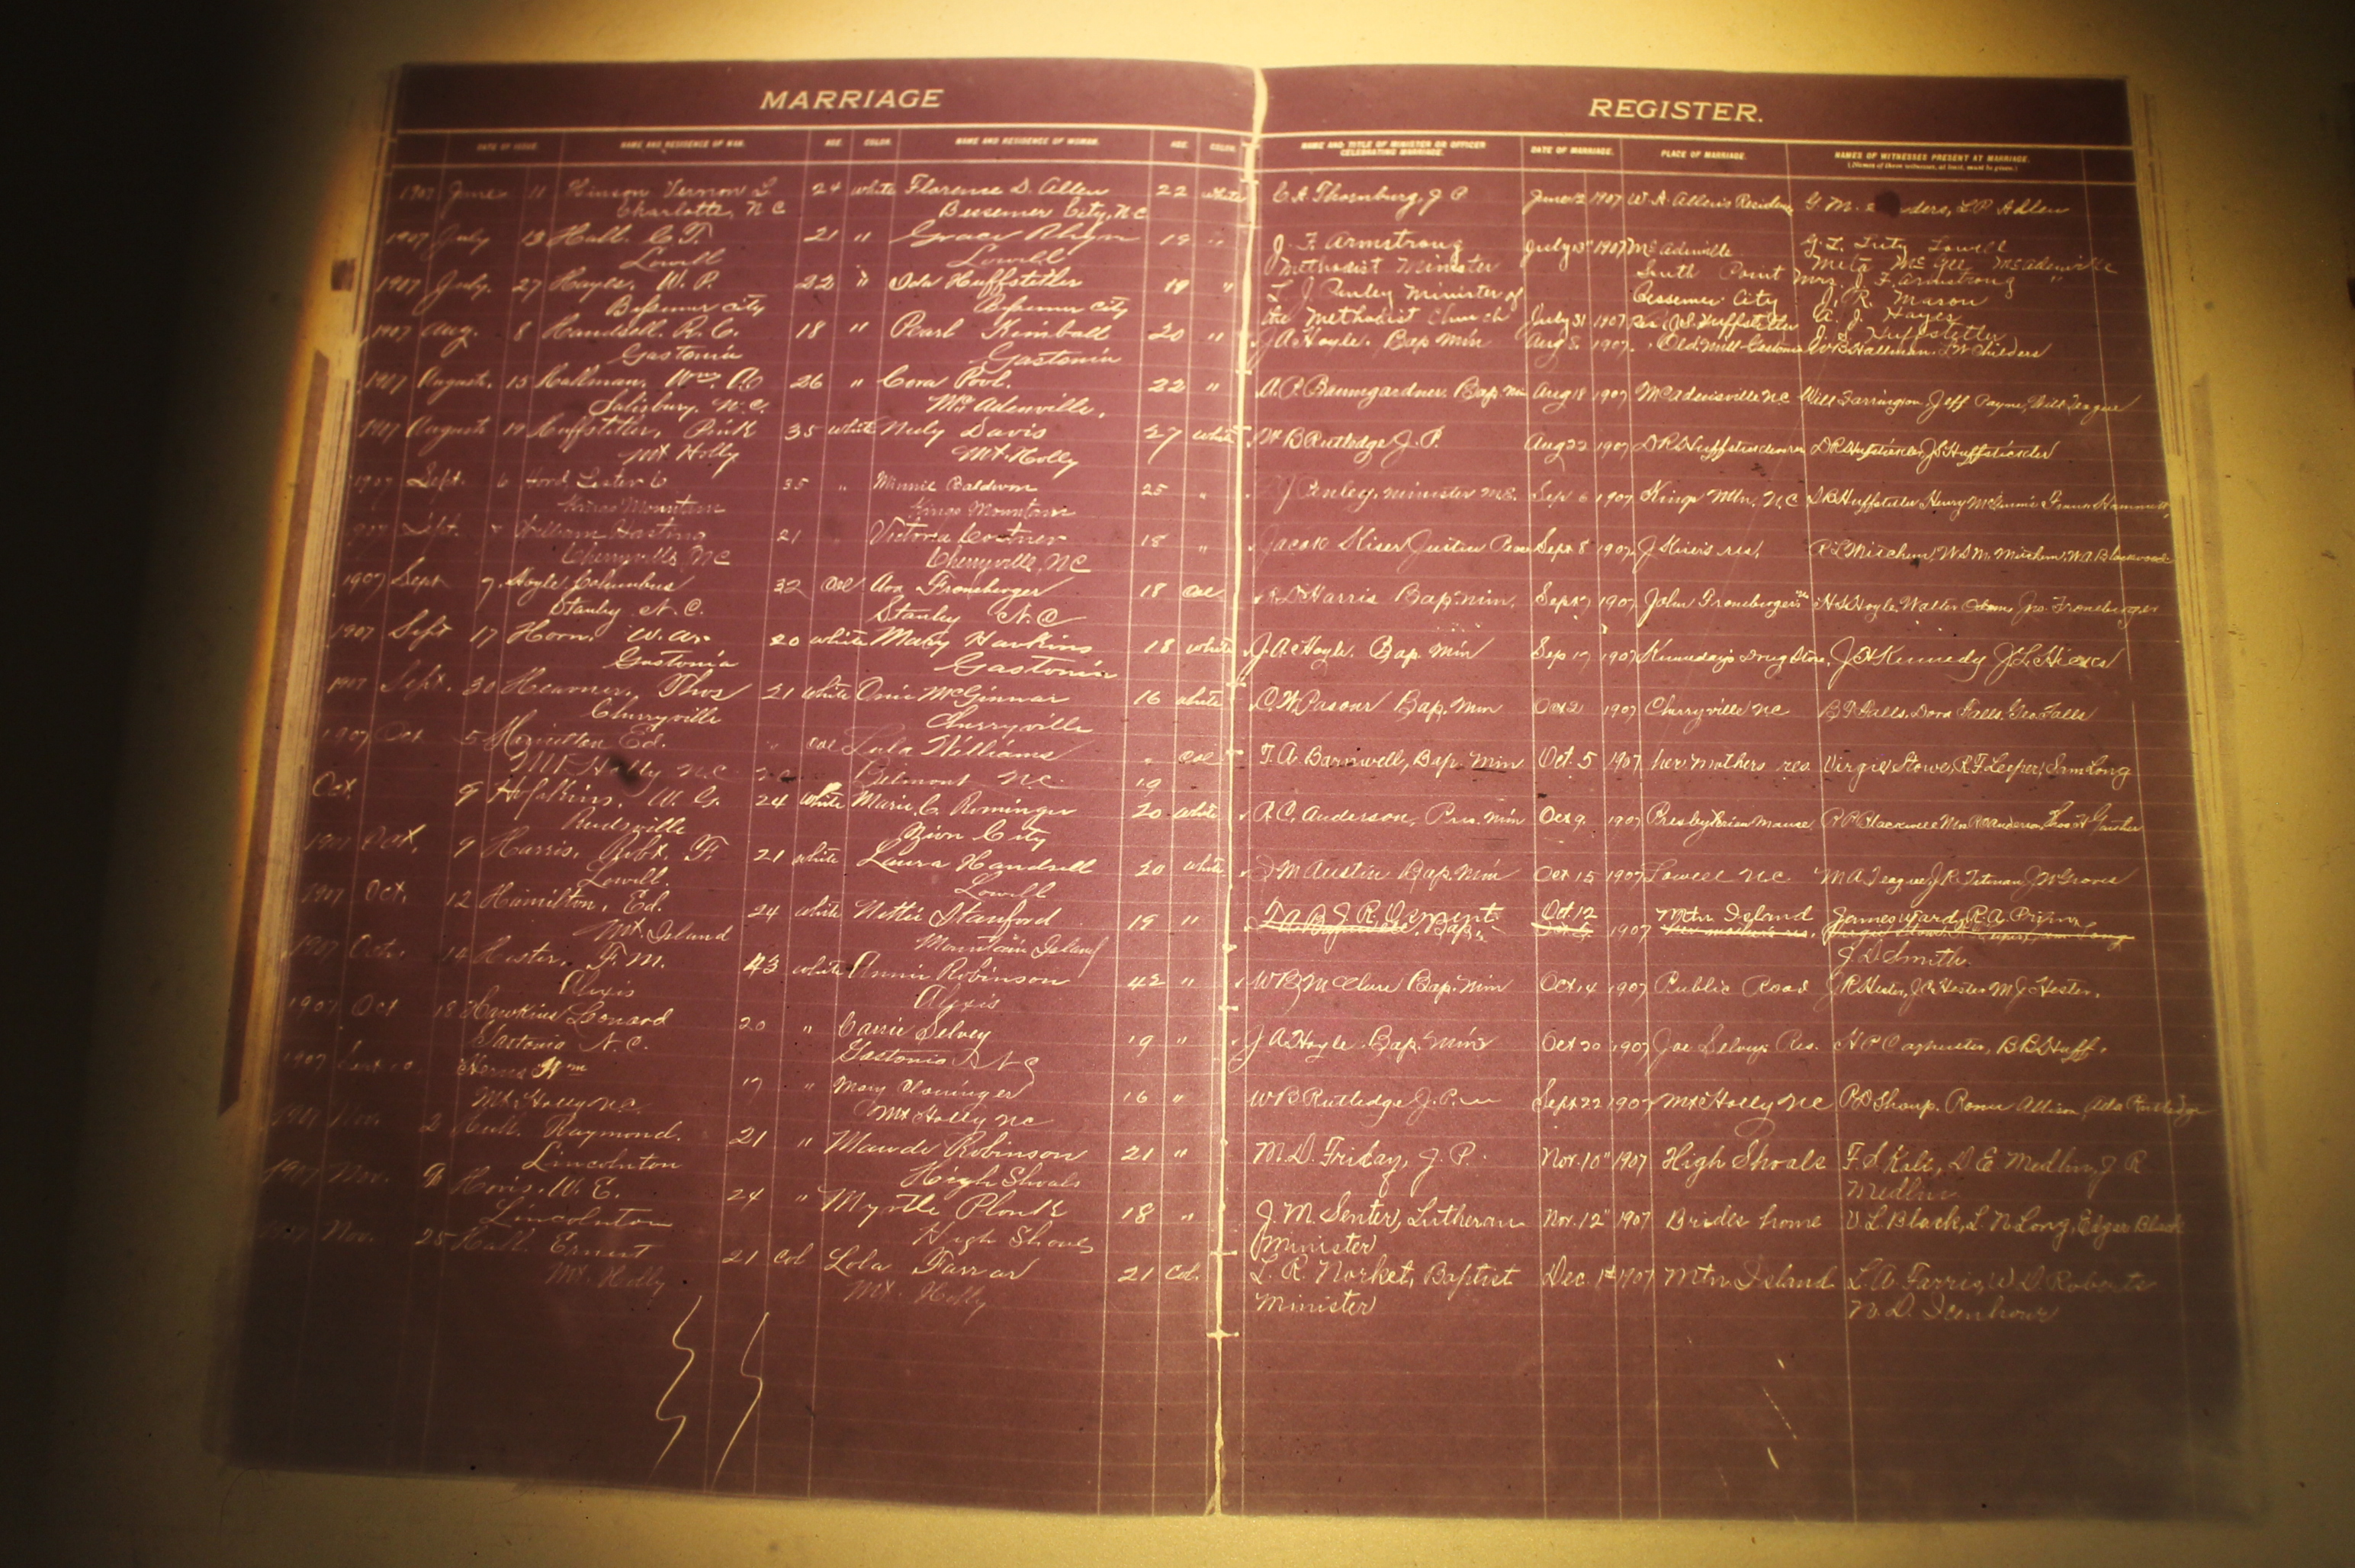 MARRIAGE
REGISTER.
DATE OF ISSUE. NAME AND RESIDENCE OF MAN. AGE. COLOR. NAME AND RESIDENCE OF WOMAN. AGE. COLOR. NAME AND TITLE OF MINISTER OR OFFICER CELEBRATING MARRIAGE. DATE OF MARRIAGE. PLACE OF MARRIAGE. NAMES OF WITNESSES PRESENT AT MARRIAGE.
1907 June 11 Hinson Vernon L 24 white Florence D. Allen 22 white C A Thornburg, J P June 12 1907 W. A. Allen's Residence G. M. L P Allen
Charlotte, N C Bessemer City, N C
1907 July 13 Hall. C. F. 21 " Grace Rhyne 19 " J. F. Armstrong July 13" 1907 McAdenville G. L. Lowell
Lowell Lowell Methodist Minister South Point Meta McGee McAdenville
Mrs. J. F. Armstrong "
1907 July. 27 Hayes, W. P. 22 " Ida Huffstetler 19 " L. J. Penley Minister of Bessemer City J. R. Mason
Bessemer City Bessemer City the Methodist Church July 31 1907 Huffstetler A. J. Hayes
J. S. Huffstetler
1907 Aug. 8 Handsell. R. C. 18 " Pearl Kimball 20 " J A Hoyle. Bap Min Aug 8. 1907. Old Mill Gastonia W B Hallman. L W Childers
Gastonia Gastonia
1907 August. 15 Hallman, Wm. 26 " Cora Pool. 22 " A. P. Baumgardner Bap. Min Aug 18 1907 McAdensville N C Will Farrington Jeff Payne, Will Teague
Salisbury, N. C. McAdenville,
1907 August 19 Huffstetler, Pink 35 white Nely Davis 27 white W B Rutledge J. P. Aug 22 1907
Mt Holly Mt. Holly
1907 Sept. 6 Hord Lester 35 " Minnie Baldwin 25 " J Penley, minister M.E. Sep 6 1907 Kings Mtn, N. C D B Huffstetler Henry
Kings Mountain Kings Mountain
1907 Sept. 7 William Hasting 21 Victoria Costner 18 " Jacob Kiser Justice Peace Sept 8 1907 J Kiser's res, R L Mitchem, W. D. M. Mitchem, W. A. Blackwood
Cherryville, N C Cherryville, N C
1907 Sept 7. Hoyle Columbus 32 Col Ava Froneberger 18 Col Harris Bap Min. Sept 7 1907 John Froneberger's H S Hoyle, Walter Jno. Froneberger
Stanley N. C. Stanley N. C
1907 Sept 17 Horn, W. W. 20 white Mary Hawkins 18 white J. A. Hoyle. Bap. Min Sep 17 1907 Kennedays Drug Store, J H Kennedy J. L.
Gastonia Gastonia
1907 Sept. 30 Heavner, Thos 21 white Onie McGinnas 16 white C. W. Pasour Bap. Min Oct 2 1907 Cherryville N C B F Falls, Dora Falls, Geo Falls
Cherryville Cherryville
1907 Oct 5 Ed. " Col Lula Williams " Col F. A. Barnwell, Bap. Min Oct. 5 1907 her mothers res Virgie Stowe, R F Leeper, Sam Long
Mt Holly N. C Belmont N. C. 19
Oct. 9 W. G. 24 white Marie C. Rominger 20 white R. C. Anderson, Pres. Min Oct 9. 1907 Presbyterian Manse R P Blackwell Mrs R C Anderson,
Reidsville Zion City
1907 Oct. 9 Harris, Robt. F. 21 white Laura Handsell 20 white M Austin Bap Min Oct 15 1907 Lowell N C. M A Teague, J. R. Titman J W Groves
Lowell. Lowell
1907 Oct. 12 Hamilton, Ed. 24 white Nettie Stanford 19 " J. R. Bap. Oct 12 1907 Mtn Island James Ward, R. A.
Mt. Island Mountain Island J. D Smith.
1907 Oct. 14 Hester, F. M. 43 white Annie Robinson 42 " W B McClure Bap. Min Oct 14 1907 Public Road J R Hester, J C Hester M J Hester.
Alexis Alexis
1907 Oct 18 Hawkins Leonard 20 " Carrie Selvey 19 " J A Hoyle Bap. Min Oct 20 1907 Joe Selvey's Res. H P Carpenter, B B Huff.
Gastonia N. C. Gastonia N C
1907 Wm 17 " Mary Cloninger 16 " W B Rutledge J. P. Sept 22 1907 Mt Holly N C Allison Ada Rutledge
Mt Holly N C. Mt Holly N C
1907 Nov. 2 Hull. Raymond. 21 " Maude Robinson 21 " M. D. Friday, J. P. Nov. 10" 1907 High Shoals F. S. Kale, D. E Medlin, J R
Lincolnton High Shoals Medlin
1907 Nov. W. E. 24 " Myrtle Plonk 18 " J. M. Senter, Lutheran Nov. 12" 1907 Brides home V. L Black, L. N Long, Edgar Black
Lincolnton High Shoals Minister
1907 Nov. 25 Hall. Ernest 21 Col Lola Farrar 21 Col. L. R. Norket, Baptist Dec. 1st 1907 Mtn. Island L. A. Farris, W. D. Roberts
Mt. Holly Mt. Holly Minister N. D. Icenhour